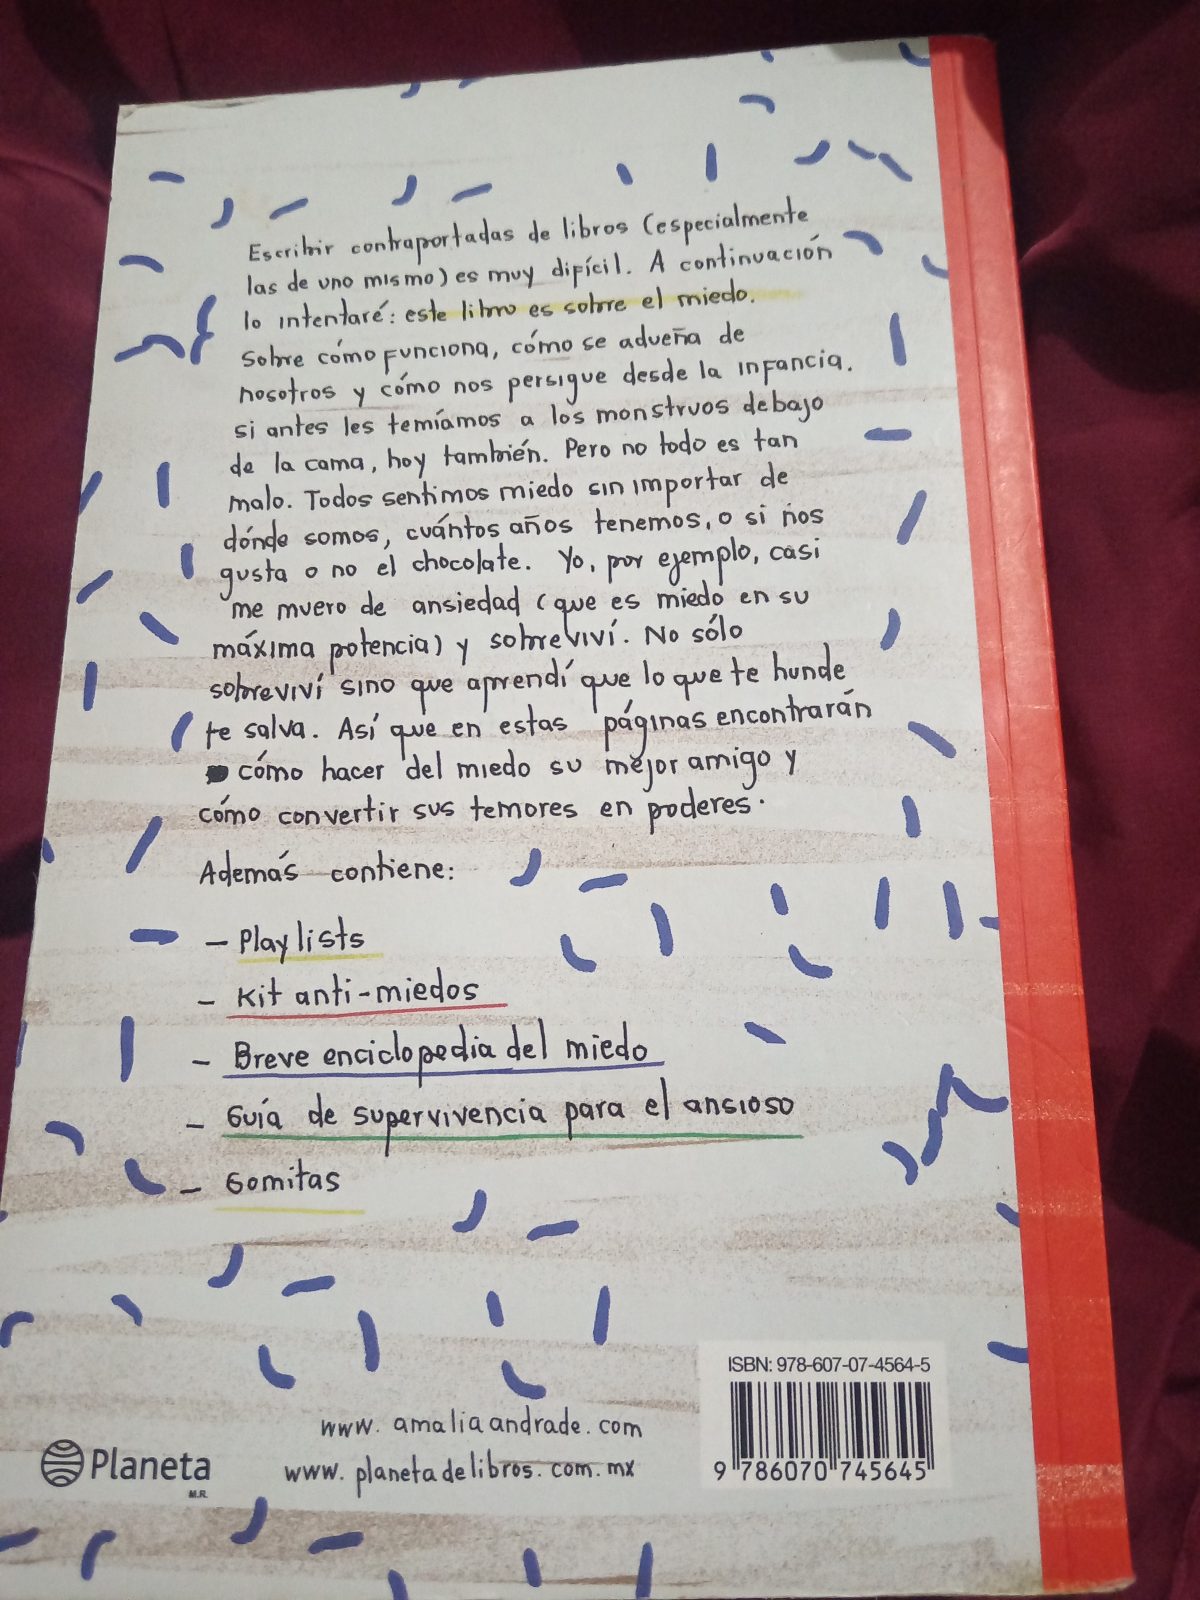 Escribir contraportadas de libros (especialmente
las de uno mismo) es muy difícil. A continuación
lo intentaré: este libro es sobre el miedo.
Sobre cómo funciona, cómo se adueña de
nosotros y cómo nos persigue desde la infancia.
si antes les temíamos a los monstruos debajo
de la cama, hoy también. Pero no todo es tan
malo. Todos sentimos miedo sin importar de
dónde somos, cuántos años tenemos, o si nos
gusta o no el chocolate. Yo, por ejemplo, casi
me muero de ansiedad (que es miedo en su
máxima potencia) y sobreviví. No sólo
sobreviví sino que aprendí que lo que te hunde
te salva. Así que en estas páginas encontrarán
cómo hacer del miedo su mejor amigo y
cómo convertir sus temores en poderes.
Además contiene:
- Playlists
- Kit anti-miedos
- Breve enciclopedia del miedo
- Guía de supervivencia para el ansioso
- Gomitas
ISBN: 978-607-07-4564-5
9 786070 745645
www.amaliaandrade.com
www.planetadelibros.com.mx
Planeta
M.R.